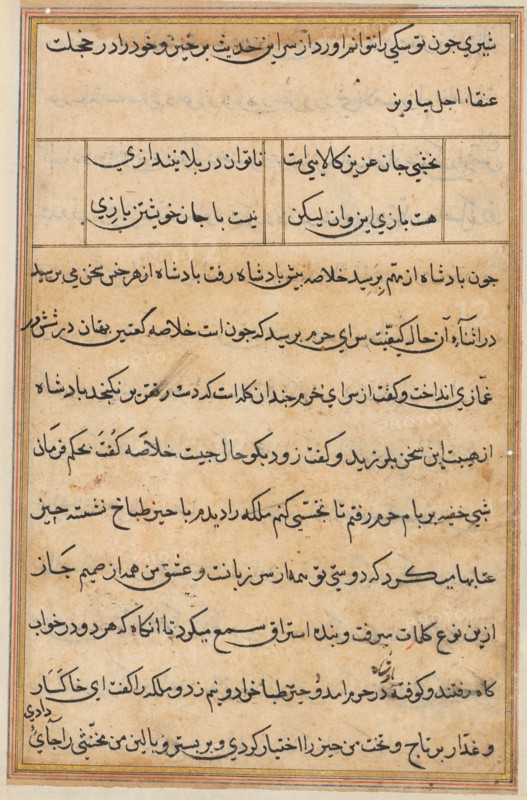 شیری چون تو سگی را نتوانم اورد از سر این حدیث برخیز و خود را در خجلت
عنقاء اجل میاویز
نخشبی جان عزیز کالایی است
ناتوان در بلا نیندازی
هست بازی این وان لیکن
نیست با جان خویشتن بازی
چون بادشاه از مهم برسید خلاصه بیش بادشاه رفت بادشاه از هر جنس سخن می برسید
در اثنآء آن حال کیفیت سرای حرم برسید که چون است خلاصه کعبتین بیقان در شش در
غمازی انداخت و کفت از سرای حرم جندان کله است که در کفتن بر نکنجد بادشاه
از هیبت این سخن بلرزید و کفت زود بکو حال جیست خلاصه کفت بحکم فرمان
شبی خفیه بر بام حرم رفتم تا تجسسی کنم ملکه را دیدم با حیز طباخ نشسته حیز
عتابها میکرد که دوستی تو همه از سر زبانست و عشق من همه از صمیم جان
ازین نوع کلمات میرفت و بنده استراق سمع میکرد تا انکاه که هر دو در خواب
کاه رفتند و کوفته در حرم امد و حیز طباخ را دو نیم زد و ملکه را کفت ای خاکسار
و غدار بر تاج و تخت من حیز را اختیار کردی و بر بستر و بالین من مخنثی را جای دادی